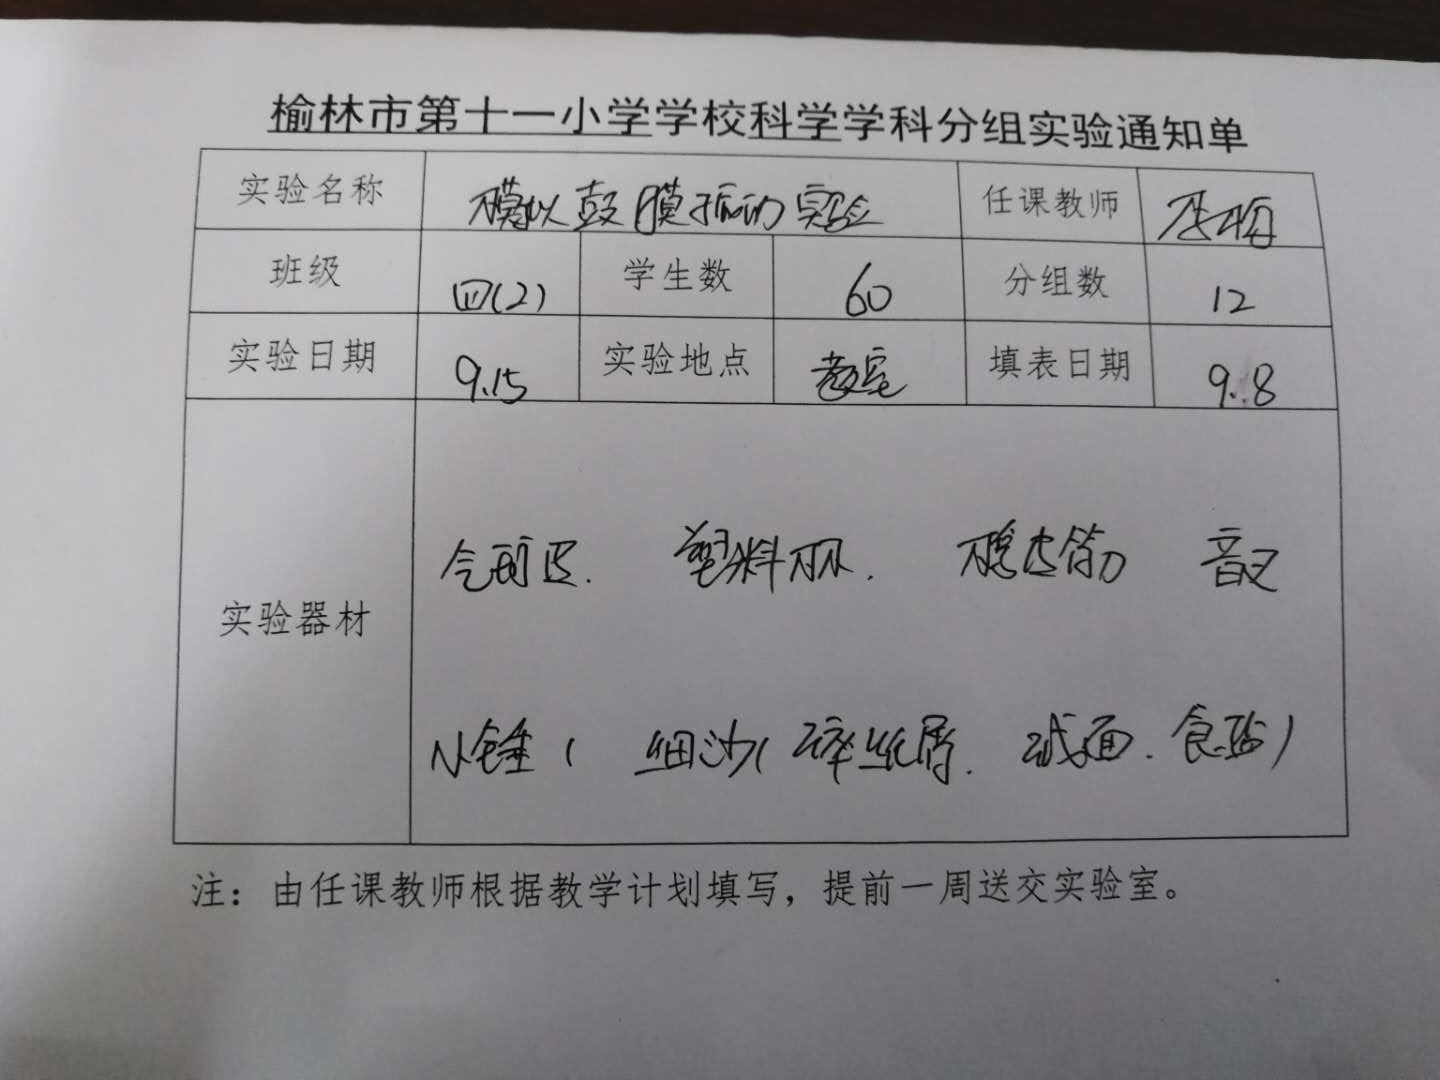 榆林市第十一小学学校科学学科分组实验通知单
实验名称 模拟鼓膜振动实验 任课教师
班级 四(2) 学生数 60 分组数 12
实验日期 9.15 实验地点 教室 填表日期 9.8
实验器材
气球皮. 塑料杯. 橡皮筋 音叉
小锤( 细沙( 碎纸屑. 碱面. 食盐)
注：由任课教师根据教学计划填写，提前一周送交实验室。